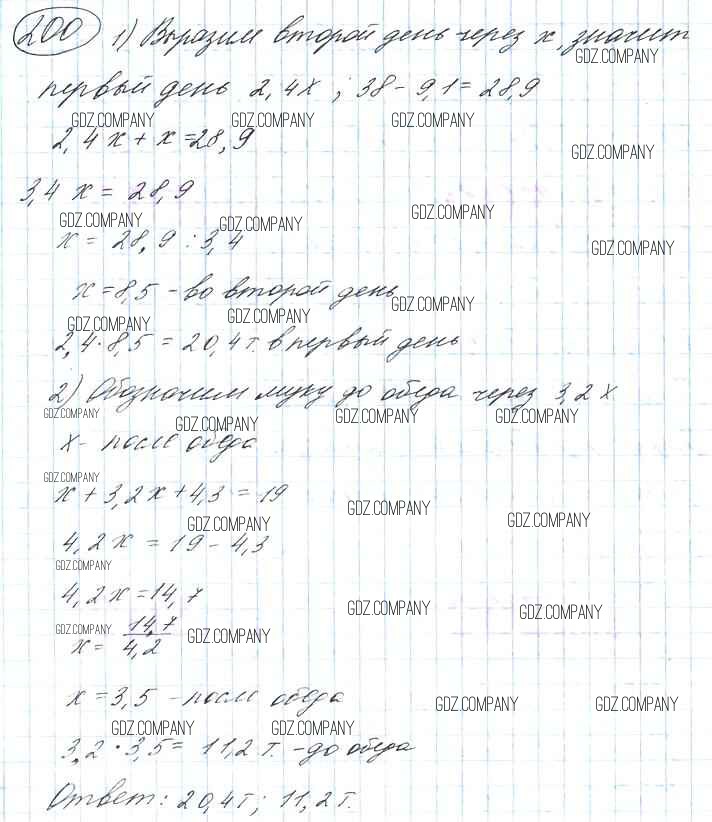 200 1) Выразим второй день через х, значит
GDZ.COMPANY
первый день 2,4х ; 38 - 9,1 = 28,9
GDZ.COMPANY GDZ.COMPANY GDZ.COMPANY
2,4х + х = 28,9
GDZ.COMPANY
3,4 х = 28,9
GDZ.COMPANY GDZ.COMPANY GDZ.COMPANY
х = 28,9 : 3,4
GDZ.COMPANY
х = 8,5 - во второй день
GDZ.COMPANY GDZ.COMPANY GDZ.COMPANY
2,4 · 8,5 = 20,4 т. в первый день
2) Обозначим муку до обеда через 3,2 х
GDZ.COMPANY GDZ.COMPANY GDZ.COMPANY GDZ.COMPANY
х - после обеда
GDZ.COMPANY
х + 3,2х + 4,3 = 19
GDZ.COMPANY GDZ.COMPANY GDZ.COMPANY
4,2х = 19 - 4,3
GDZ.COMPANY
4,2х = 14,7
GDZ.COMPANY GDZ.COMPANY
GDZ.COMPANY GDZ.COMPANY
х = 14,7 / 4,2
х = 3,5 - после обеда
GDZ.COMPANY GDZ.COMPANY
GDZ.COMPANY GDZ.COMPANY
3,2 · 3,5 = 11,2 т. - до обеда
Ответ: 20,4т; 11,2т.